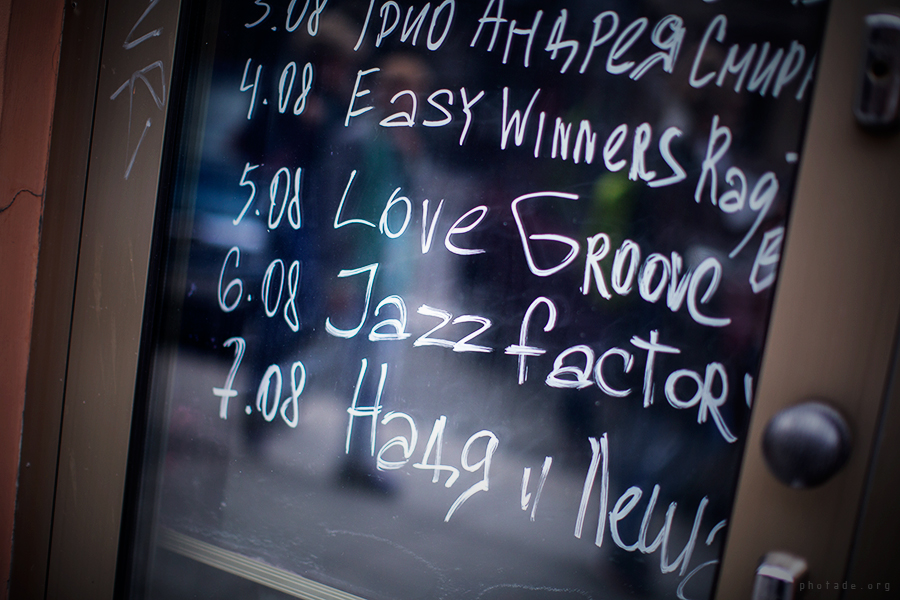 3.08 Трио Андрея Смир
4.08 Easy Winners Rag
5.08 Love Groove
6.08 Jazz factory
7.08 Надя и Леша
photade.org